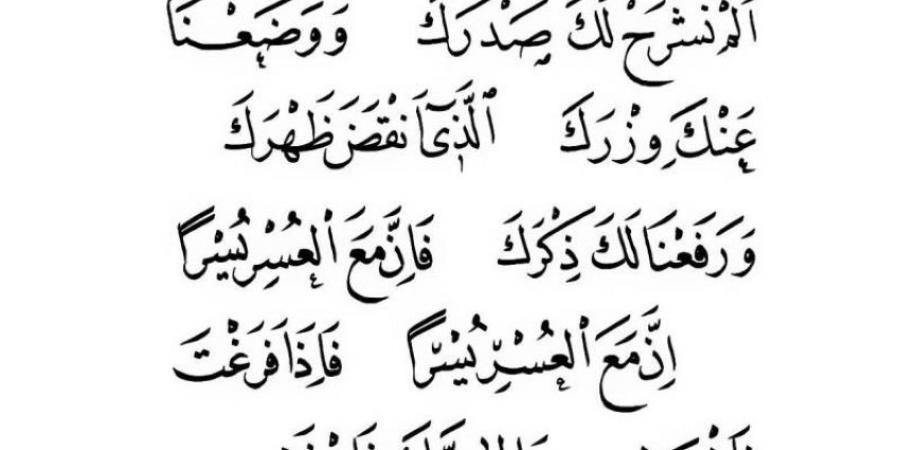 اَلَمْ نَشْرَحْ لَكَ صَدْرَكَ وَوَضَعْنَا
عَنْكَ وِزْرَكَ ٱلَّذِىٓ اَنْقَضَ ظَهْرَكَ
وَرَفَعْنَا لَكَ ذِكْرَكَ فَاِنَّ مَعَ ٱلْعُسْرِ يُسْرًا
اِنَّ مَعَ ٱلْعُسْرِ يُسْرًا فَاِذَا فَرَغْتَ